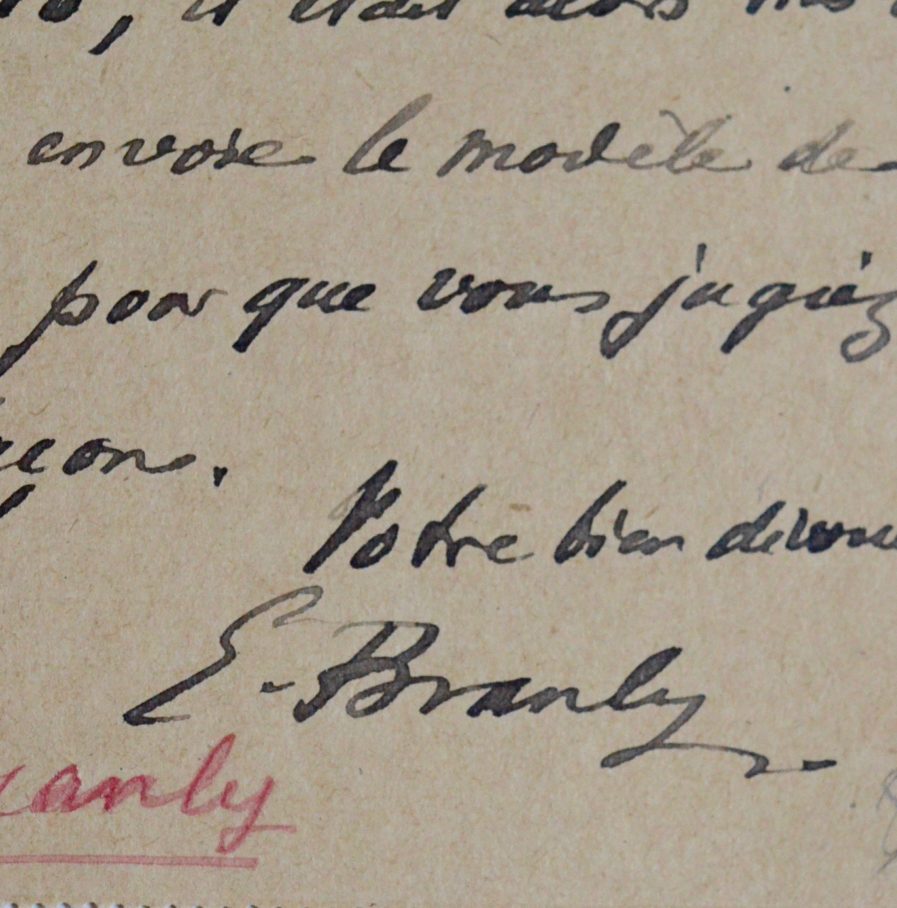 , il était alors
envoie le modèle de
pour que vous jugiez
açon.
Votre bien dévoué
E. Branly
ranly